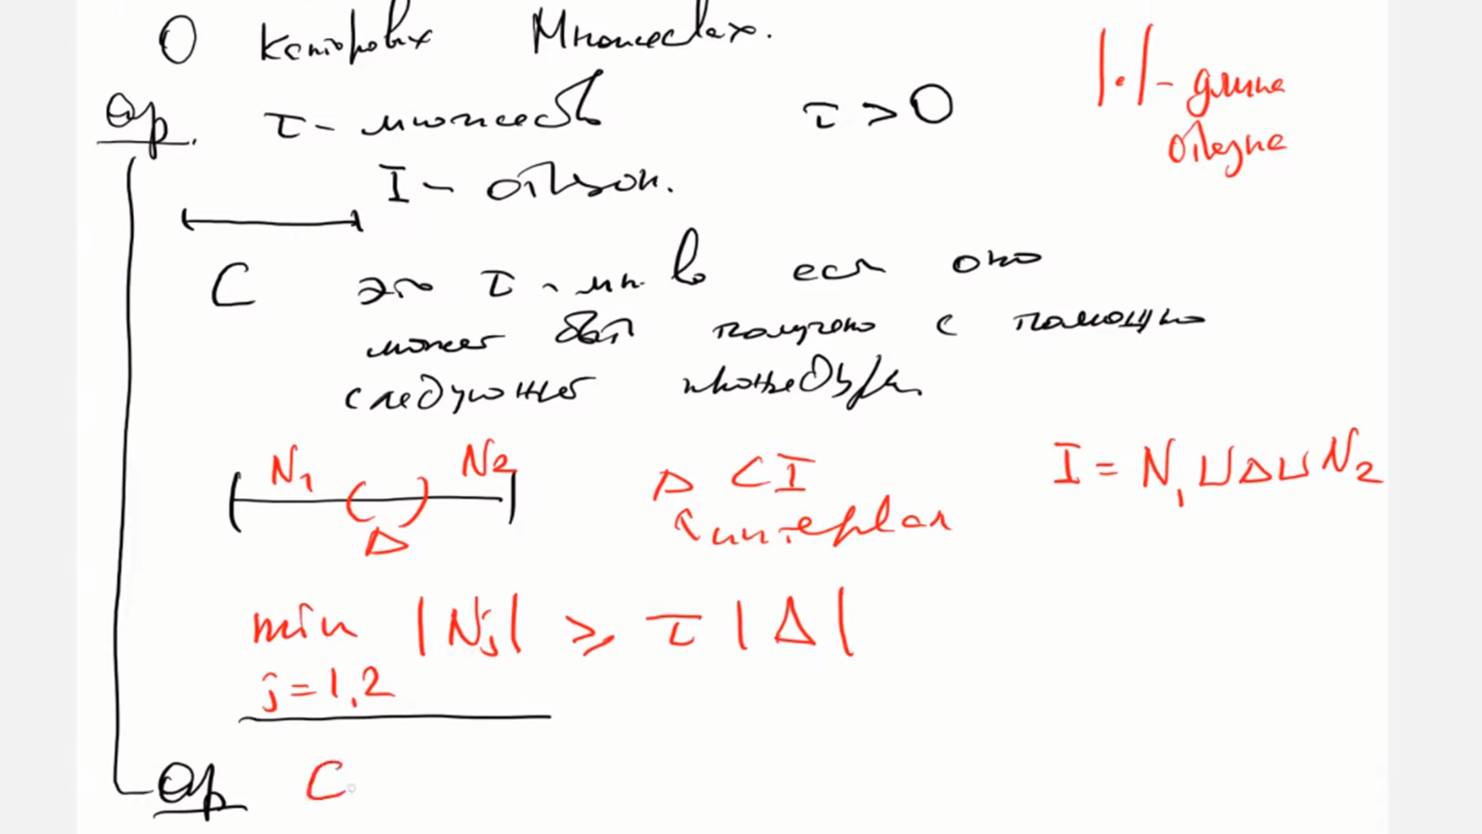 О канторовых множествах.
Опр. τ - множеств τ > 0
|·| - длина
отрезка
I - отрезок.
C это τ - мн. во если оно
может быть получено с помощью
следующей процедуры
N₁ N₂ Δ ⊂ I I = N₁ ⊔ Δ ⊔ N₂
Δ интервал
min |Nⱼ| ⩾ τ |Δ|
j = 1,2
Опр C